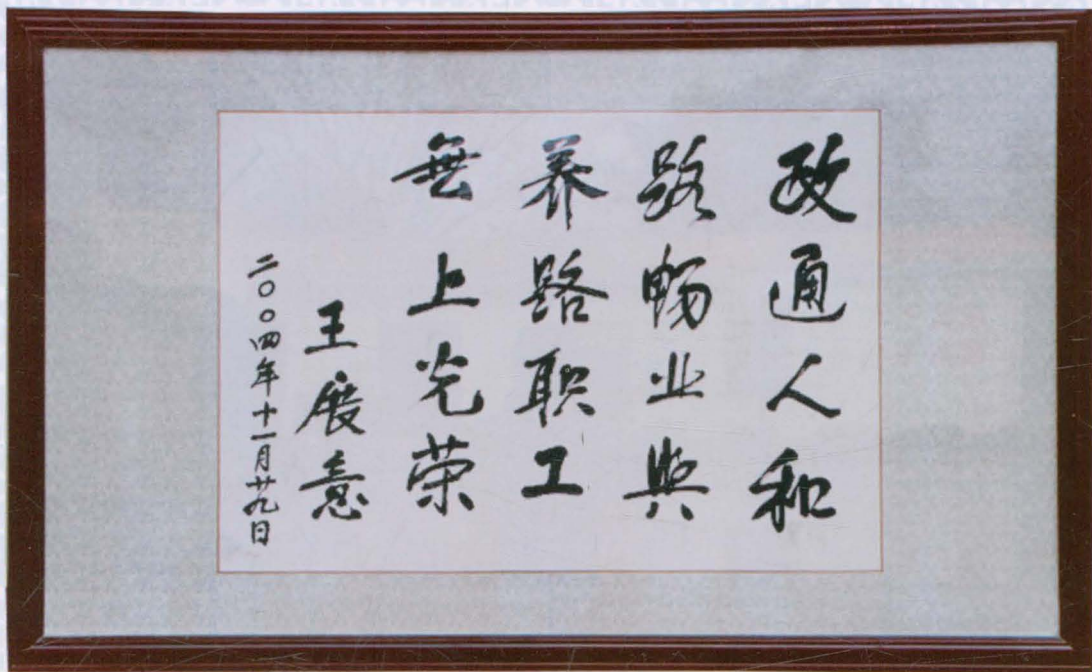 政通人和
路畅业興
养路职工
無上光荣
王展意
二〇〇四年十一月廿九日